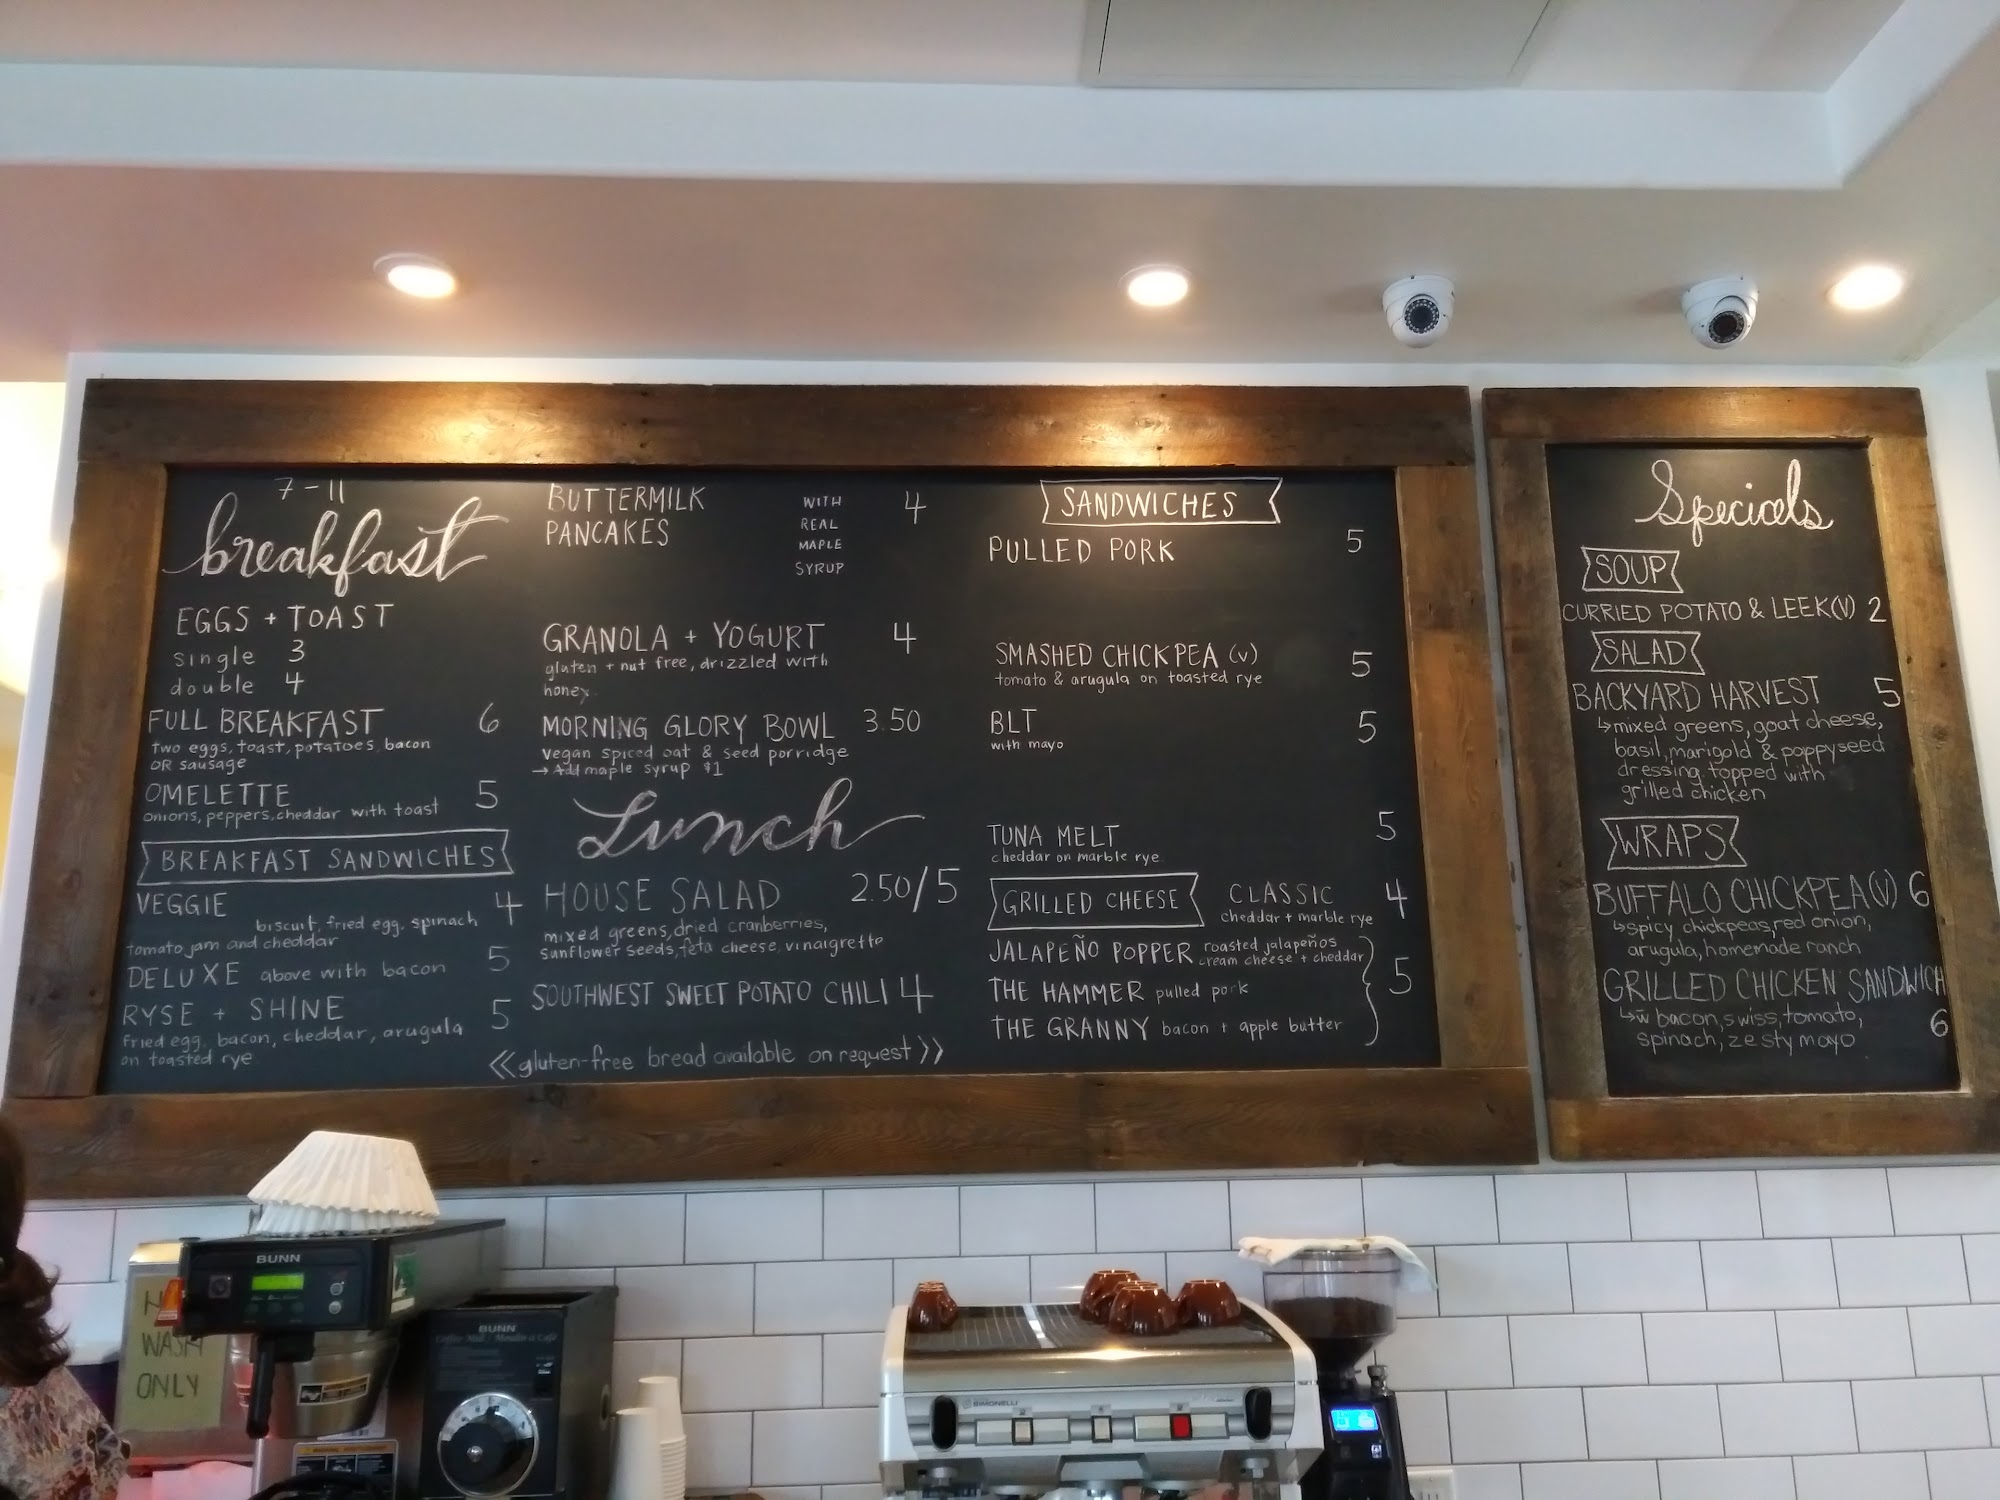 7-11
breakfast
EGGS + TOAST
single 3
double 4
FULL BREAKFAST 6
two eggs, toast, potatoes, bacon
OR sausage
OMELETTE 5
onions, peppers, cheddar with toast
BREAKFAST SANDWICHES
VEGGIE 4
biscuit, fried egg, spinach
tomato jam and cheddar
DELUXE above with bacon 5
RYSE + SHINE 5
fried egg, bacon, cheddar, arugula
on toasted rye
BUTTERMILK WITH 4
PANCAKES REAL
MAPLE
SYRUP
GRANOLA + YOGURT 4
gluten + nut free, drizzled with
honey
MORNING GLORY BOWL 3.50
vegan spiced oat & seed porridge
→ Add maple syrup $1
Lunch
HOUSE SALAD 2.50/5
mixed greens, dried cranberries,
sunflower seeds, feta cheese, vinaigrette
SOUTHWEST SWEET POTATO CHILI 4
<<gluten-free bread available on request>>
SANDWICHES
PULLED PORK 5
SMASHED CHICKPEA (v) 5
tomato & arugula on toasted rye
BLT 5
with mayo
TUNA MELT 5
cheddar on marble rye
GRILLED CHEESE CLASSIC 4
cheddar + marble rye
JALAPEÑO POPPER roasted jalapeños
cream cheese + cheddar
THE HAMMER pulled pork 5
THE GRANNY bacon + apple butter
Specials
SOUP
CURRIED POTATO & LEEK (V) 2
SALAD
BACKYARD HARVEST 5
↳mixed greens, goat cheese,
basil, marigold & poppyseed
dressing topped with
grilled chicken
WRAPS
BUFFALO CHICKPEA (V) 6
↳spicy chickpeas, red onion,
arugula, homemade ranch
GRILLED CHICKEN SANDWICH
↳w̄ bacon, swiss, tomato, 6
spinach, zesty mayo
BUNN
WASH
ONLY
BUNN
SIMONELLI